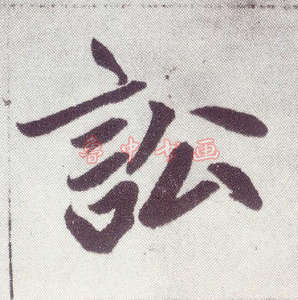 訟
鲁中书画